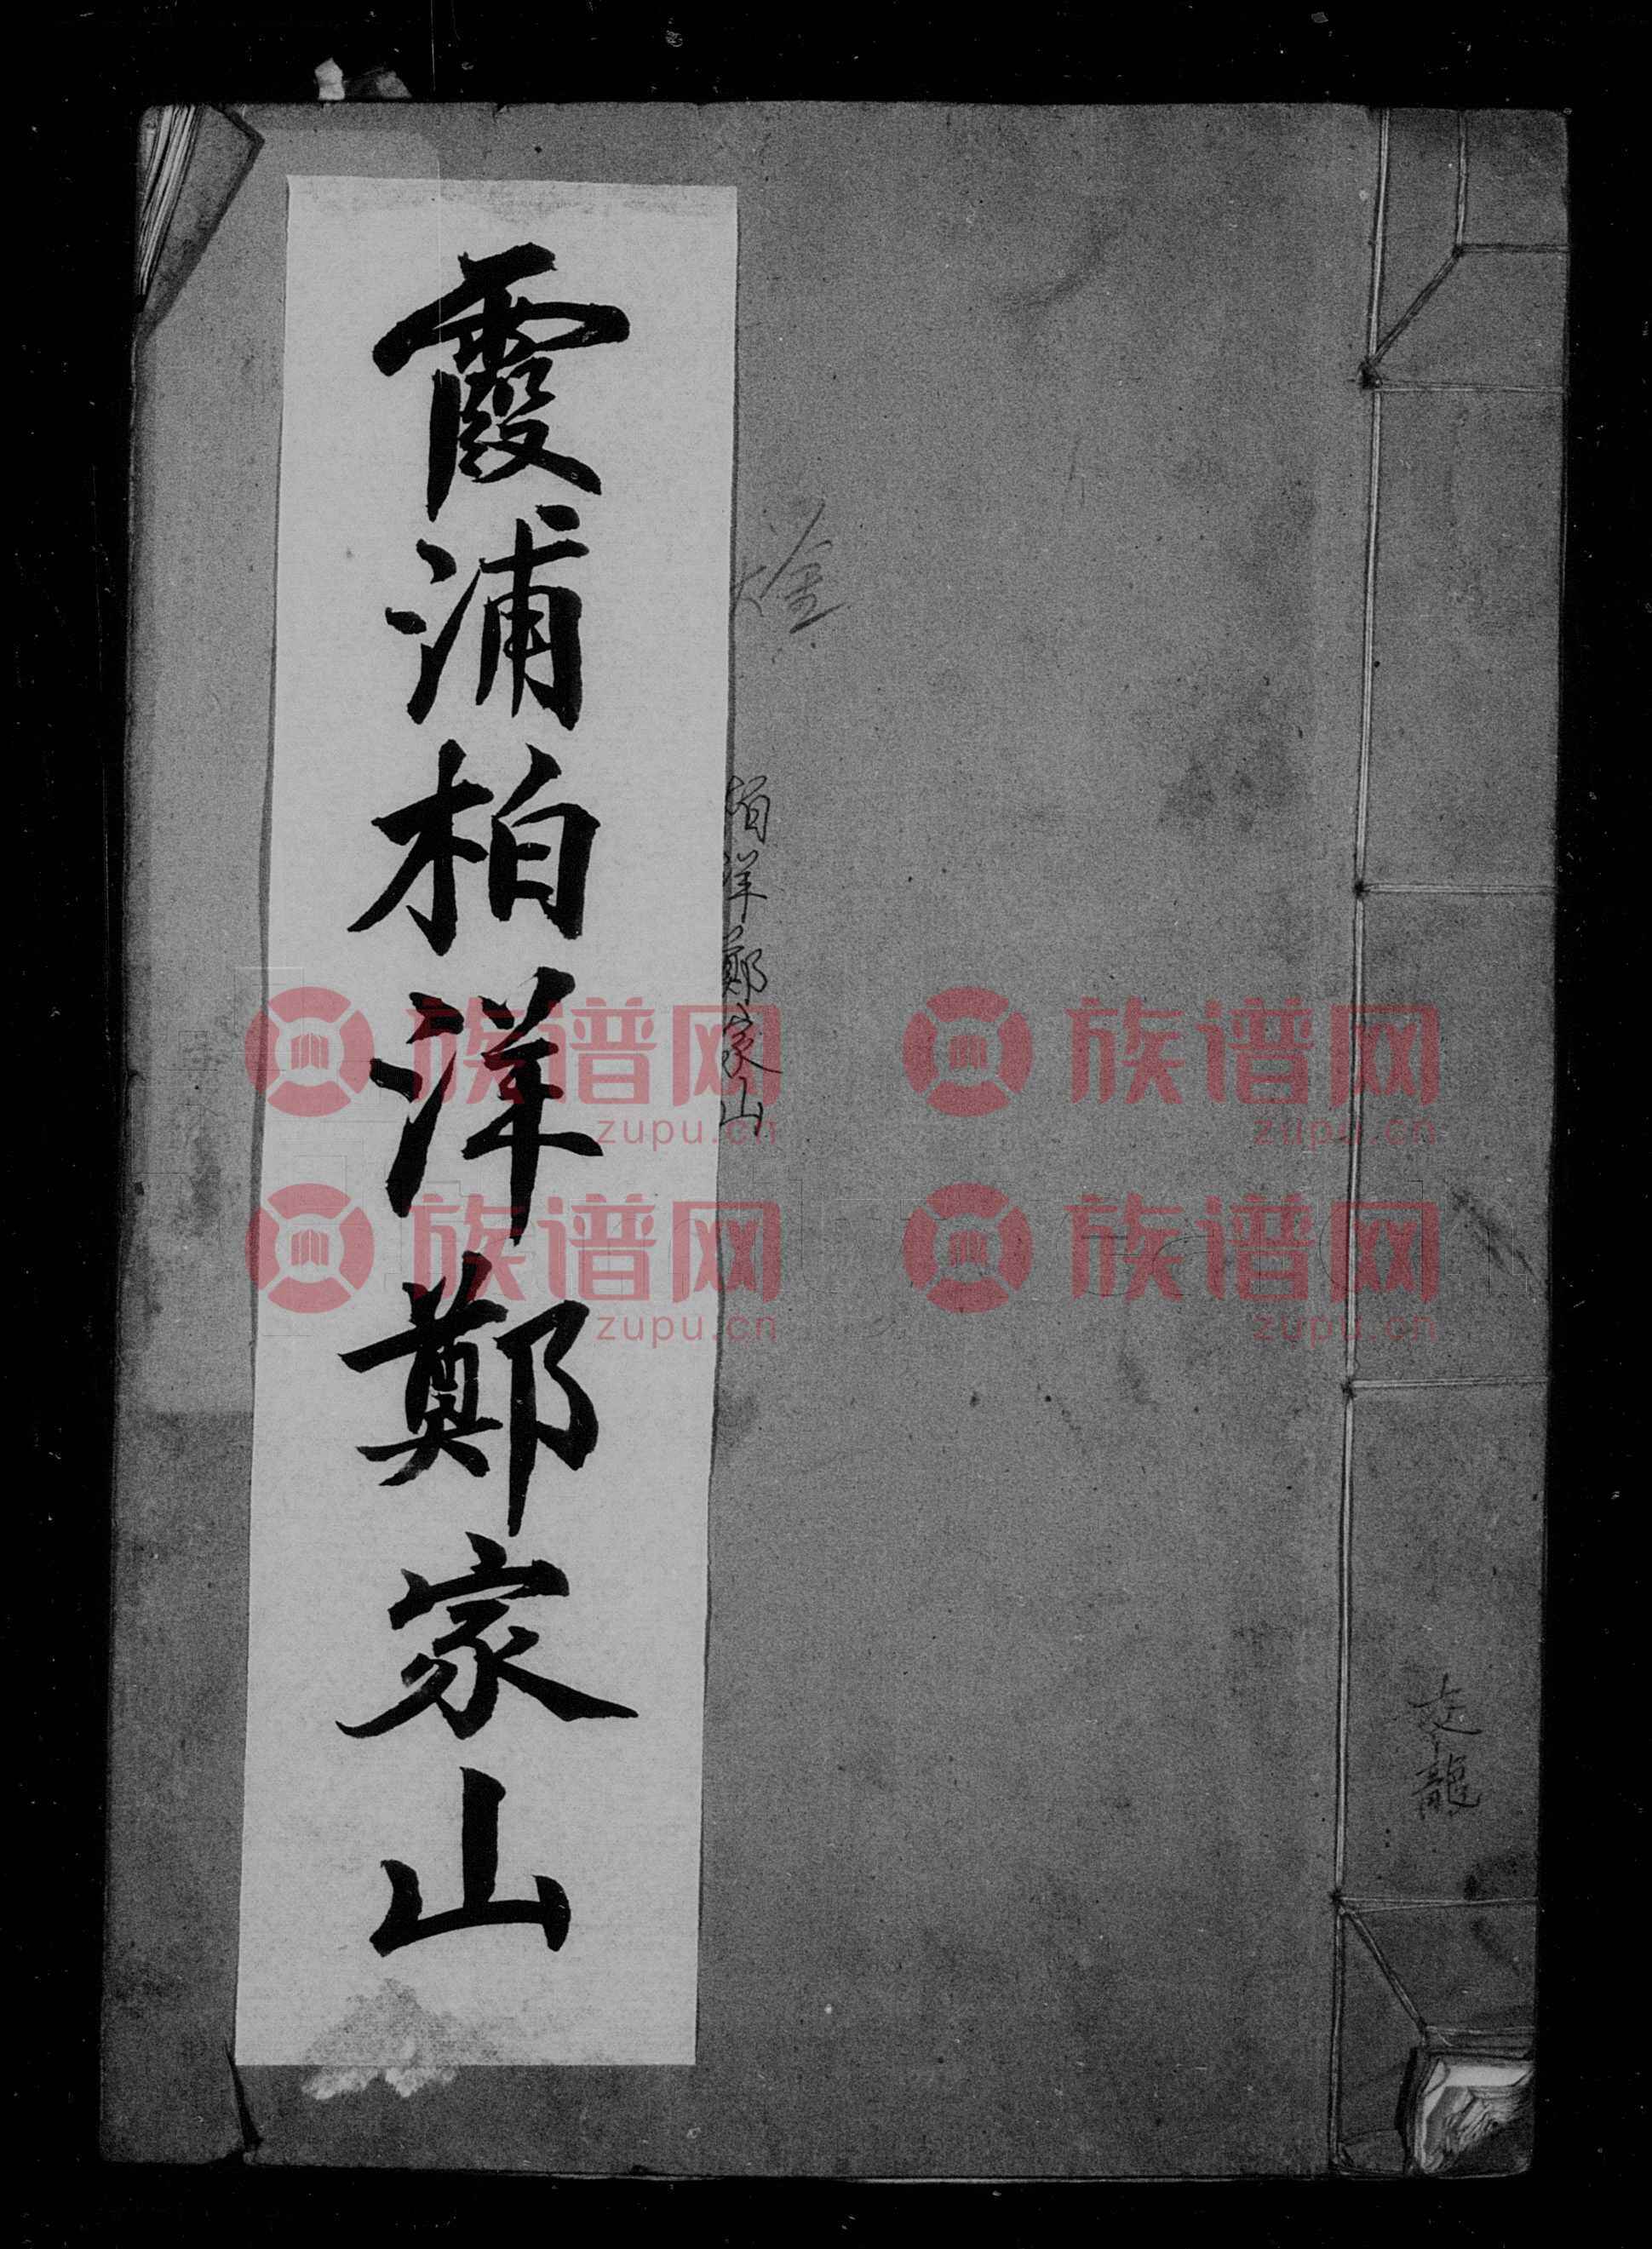 霞浦柏洋鄭家山
柏洋鄭家山
族谱网
zupu.cn
族谱网
zupu.cn
族谱网
zupu.cn
族谱网
zupu.cn